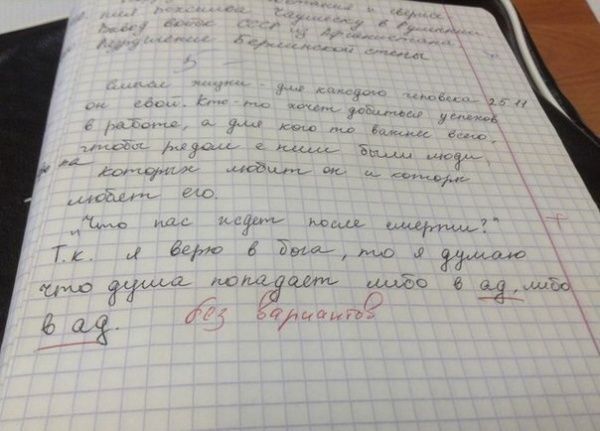 Вывод войск СССР из Афганистана
Разрушение Берлинской стены
5
Смысл жизни - для каждого человека 25.11
он свой. Кто-то хочет добиться успехов
в работе, а для кого то важнее всего,
чтобы рядом с ним были люди,
которых любит он и котор
любят его.
"Что нас ждет после смерти?"
Т.к. я верю в бога, то я думаю
что душа попадает либо в ад, либо
в ад. без вариантов